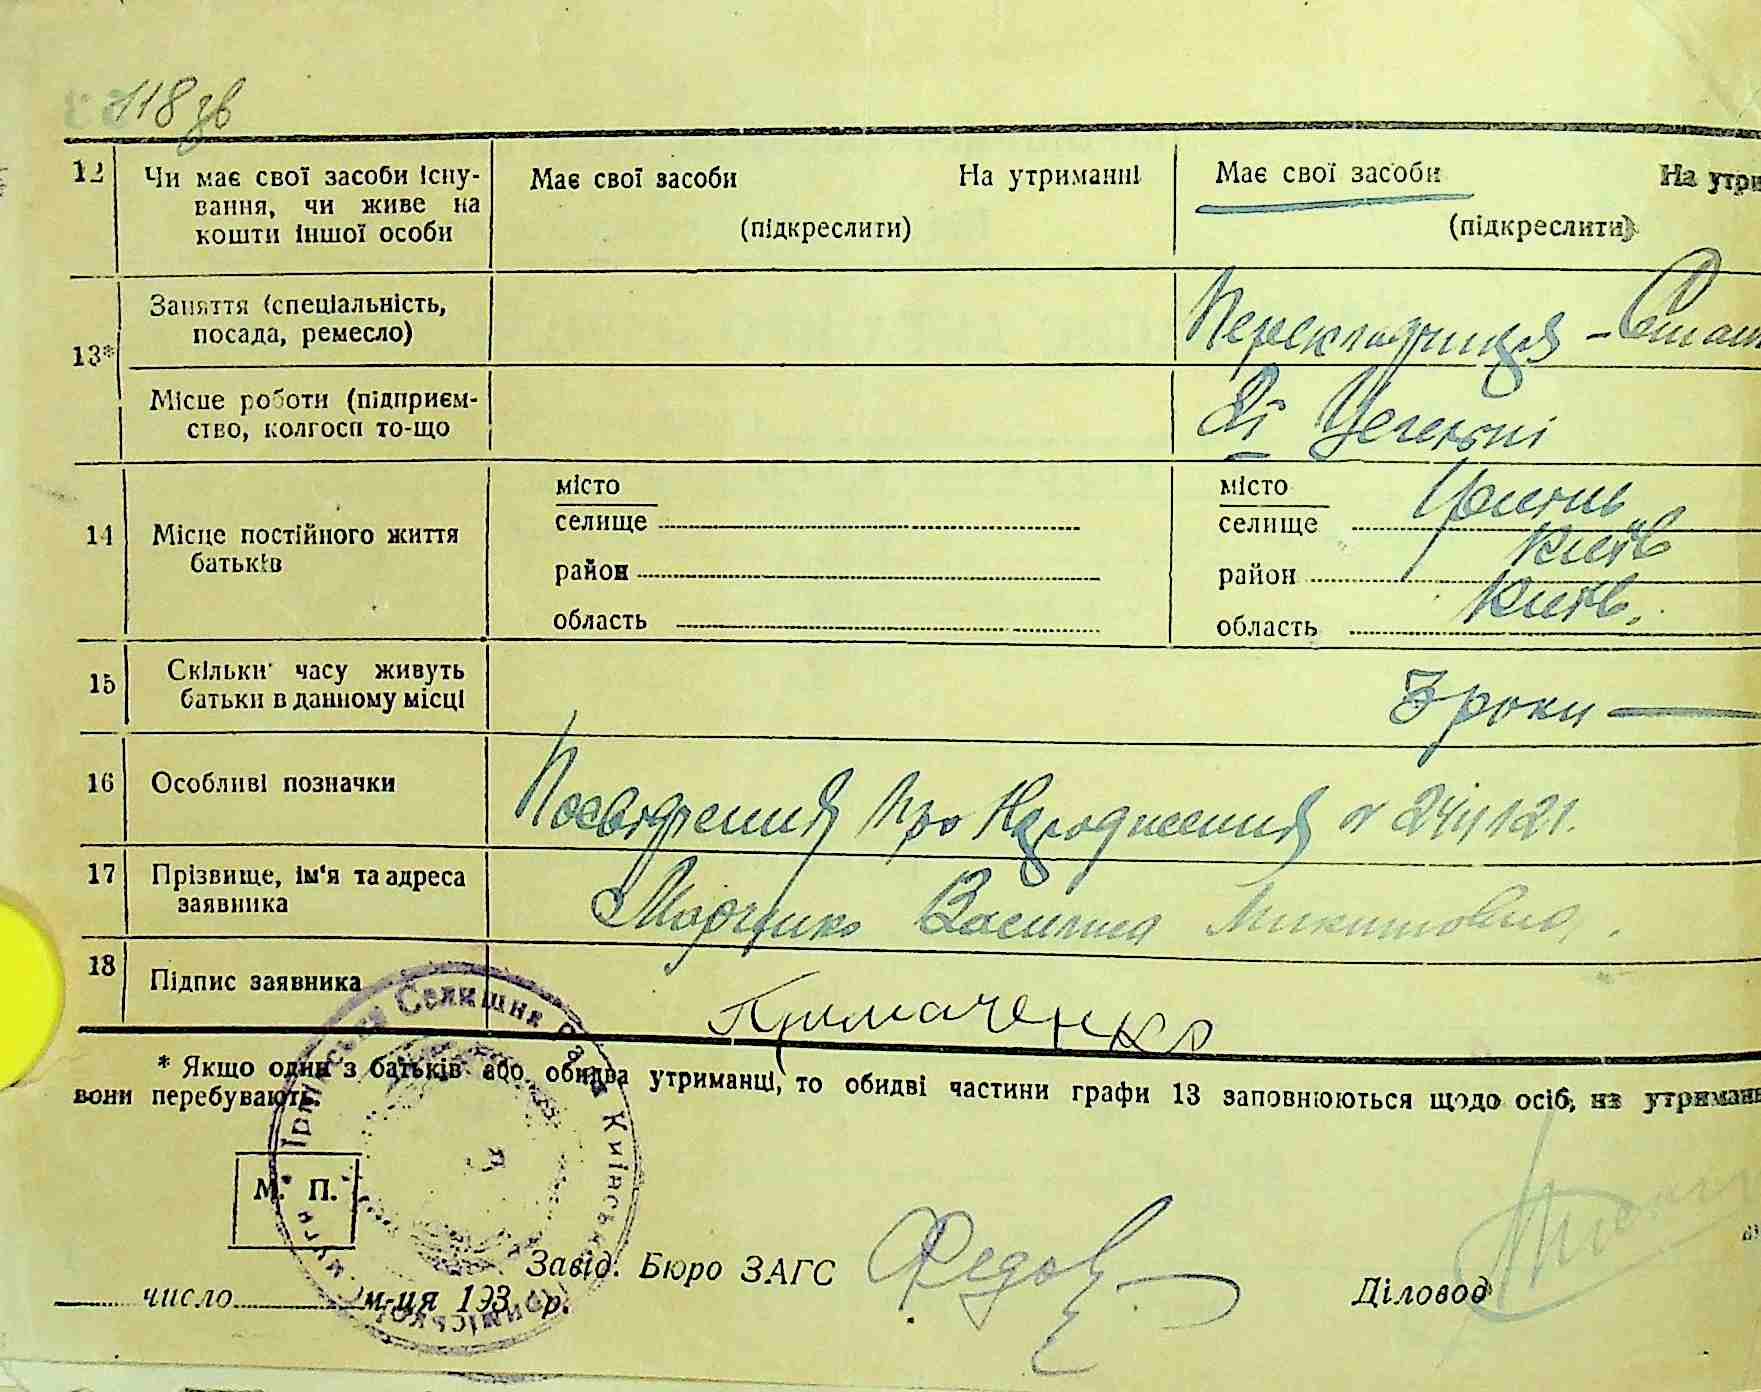 118 зв
12 Чи має свої засоби існу-
вання, чи живе на
кошти іншої особи
Має свої засоби На утриманні
(підкреслити)
Має свої засоби На утри
(підкреслити)
13* Заняття (спеціальність,
посада, ремесло)
Місце роботи (підприєм-
ство, колгосп то-що
14 Місце постійного життя
батьків
місто
селище
район
область
місто Ірпінь
селище
район Київ
область Київ.
15 Скільки часу живуть
батьки в данному місці
3 роки
16 Особливі позначки
Посвідчення про Народження № 
17 Прізвище, ім'я та адреса
заявника
Василина Микитовна.
18 Підпис заявника
* Якщо один з батьків або обидва утриманці, то обидві частини графи 13 заповнюються щодо осіб, на утриман
вони перебувають.
Ірпінська Селищна Рада Київської
М. П.
Завід. Бюро ЗАГС Федов
число м-ця 193 р.
Діловод